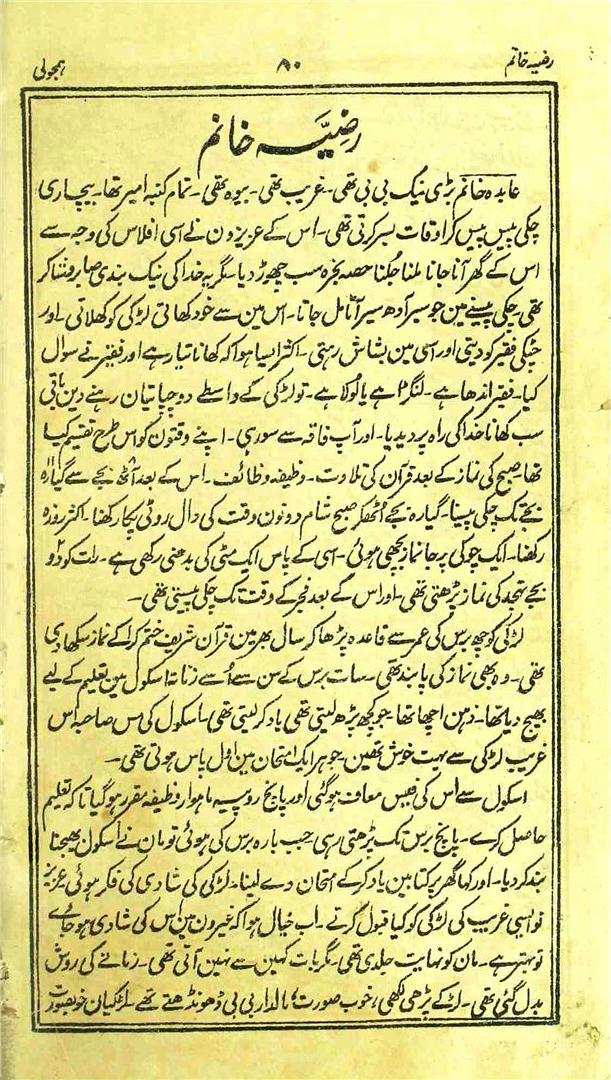 رضیہ خانم ۸۰ ہمجولی
رضیّہ خانم
عابدہ خانم بڑی نیک بی بی تھی۔ غریب تھی۔ بیوہ تھی۔ تمام کنبہ امیر تھا۔ بیچاری
چکی پیس پیس کر اوقات بسر کرتی تھی۔ اس کے عزیزون نے اسی افلاس کی وجہ سے
اس کے گھر آنا جانا ملنا جُلنا حصہ بخرہ سب چھوڑ دیا۔ مگر یہ خدا کی نیک بندی صابر و شاکر
تھی۔ چکی پیسنے مین جو سیر آدھ سیر آٹا مل جاتا۔ اس مین سے خود کھاتی لڑکی کو کھلاتی۔ اور
چٹکی فقیر کو دیتی اور اسی مین بشاش رہتی۔ اکثر ایسا ہوا کہ کھانا تیار ہے اور فقیر نے سوال
کیا۔ فقیر اندھا ہے۔ لنگڑا ہے یا لولا ہے۔ تو لڑکی کے واسطے دو چپاتیان رہنے دین باقی
سب کھانا خدا کی راہ پر دیدیا۔ اور آپ فاقہ سے سو رہی۔ اپنے وقتون کو اس طرح تقسیم کیا
تھا صبح کی نماز کے بعد قرآن کی تلاوت۔ وظیفہ وظائف۔ اس کے بعد آٹھ بجے سے گیارہ
بجے تک چکی پیسنا۔ گیارہ بجے اُٹھکر صبح شام دونون وقت کی دال روٹی پکا رکھنا۔ اکثر روزہ
رکھنا۔ ایک چوکی پر جانماز بچھی ہوئی۔ اسی کے پاس ایک مٹی کی بدھنی رکھی ہے۔ رات کو دو
بجے تہجد کی نماز پڑھتی تھی۔ اور اس کے بعد فجر کے وقت تک چکی پیستی تھی۔
لڑکی کو چھ برس کی عمر سے قاعدہ پڑھا کر سال بھر مین قرآن شریف ختم کرا کے نماز سکھا دی
تھی۔ وہ بھی نماز کی پابند تھی۔ سات برس کے سن سے اُسے زنانہ اسکول مین تعلیم کے لیے
بھیج دیا تھا۔ ذہن اچھا تھا۔ جو کچھ پڑھ لیتی تھی یاد کر لیتی تھی۔ اسکول کی مس صاحبہ اس
غریب لڑکی سے بہت خوش تھین۔ جو ہر ایک امتحان مین اوّل پاس ہوتی تھی۔
اسکول سے اس کی فیس معاف ہو گئی اور پانچ روپیہ ماہوار وظیفہ مقرر ہو گیا تاکہ تعلیم
حاصل کرے۔ پانچ برس تک پڑھتی رہی جب بارہ برس کی ہوئی تو مان نے اسکول بھیجنا
بند کر دیا۔ اور کہا گھر پر کتابین یاد کر کے امتحان دے لینا۔ لڑکی کی شادی کی فکر ہوئی عزیز
تو ایسی غریب کی لڑکی کو کیا قبول کرتے۔ اب خیال ہوا کہ غیرون مین اس کی شادی ہو جائے
تو بہتر ہے۔ مان کو نہایت جلدی تھی۔ مگر بات کہین سے نہین آتی تھی۔ زمانے کی روش
بدل گئی تھی۔ لڑکے پڑھی لکھی، خوب صورت، مالدار بی بی ڈھونڈھتے تھے۔ لڑکیان خوبصورت